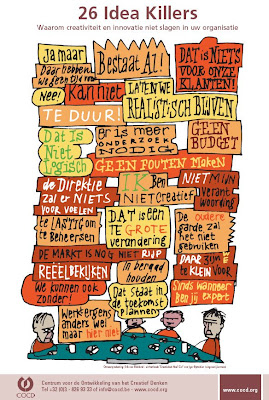 26 Idea Killers
Waarom creativiteit en innovatie niet slagen in uw organisatie
Ja maar
Bestaat Al!
DAT is NIETS
VOOR ONZE
KLANTEN!
Daar hebben
we geen tijd voor
Nee!
Kan niet
LATEN WE
REALISTISCH BLIJVEN
TE DUUR!
Dat Is
Niet
Logisch
er is meer
ONDERZOEK
NODIG
GEEN
BUDGET
GEEN FOUTEN Maken
de Direktie
zal er NIETS
VOOR VOELEN
IK Ben
NIET Creatief
NIET MIJN
Verant
Woording
te LASTIG OM
te Beheersen
DAT is EEN
TE GROTE
verandering
De oudere
garde zal
het niet
gebruiken
DE MARKT IS NOG NIET RIJP
DAAR zijn we
te KLEIN VOOR
REËEL BEKIJKEN
In beraad
houden
We kunnen ook
zonder!
Dat staat in
de toekomst
plannen
Sinds wanneer
Ben jij expert
Werkt ergens
anders wel
maar hier niet
COCD
Centrum voor de Ontwikkeling van het Creatief Denken
www.cocd.org